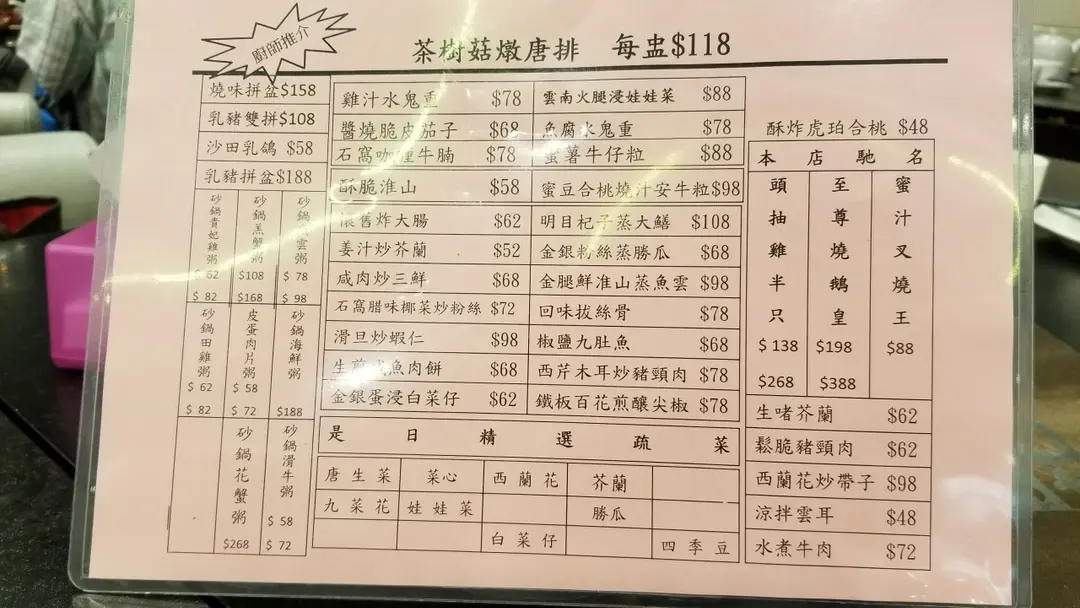 廚師推介
茶樹菇燉唐排 每盅$118
燒味拼盆$158
乳豬雙拼$108
沙田乳鴿 $58
乳豬拼盆$188
砂鍋貴妃雞粥
$ 62
$ 82
砂鍋羔蟹粥
$108
$168
砂鍋 雲粥
$ 78
$ 98
砂鍋田雞粥
$ 62
$ 82
皮蛋肉片粥
$ 58
$ 72
砂鍋海鮮粥
$188
砂鍋花蟹粥
$268
砂鍋滑牛粥
$ 58
$ 72
雞汁水鬼重 $78
醬燒脆皮茄子 $68
石窩咖喱牛腩 $78
酥脆淮山 $58
懷舊炸大腸 $62
姜汁炒芥蘭 $52
咸肉炒三鮮 $68
石窩腊味椰菜炒粉絲 $72
滑旦炒蝦仁 $98
生煎 魚肉餅 $68
金銀蛋浸白菜仔 $62
雲南火腿浸娃娃菜 $88
魚腐水鬼重 $78
蜜薯牛仔粒 $88
蜜豆合桃燒汁安牛粒$98
明目杞子蒸大鱔 $108
金銀粉絲蒸勝瓜 $68
金腿鮮淮山蒸魚雲 $98
回味拔絲骨 $78
椒鹽九肚魚 $68
西芹木耳炒豬頸肉 $78
鐵板百花煎釀尖椒 $78
是日精選疏菜
唐生菜 菜心 西蘭花 芥蘭
九菜花 娃娃菜 勝瓜
白菜仔 四季豆
酥炸虎珀合桃 $48
本店馳名
頭抽雞半只
$ 138
$268
至尊燒鵝皇
$198
$388
蜜汁叉燒王
$88
生啫芥蘭 $62
鬆脆豬頸肉 $62
西蘭花炒帶子 $98
涼拌雲耳 $48
水煮牛肉 $72